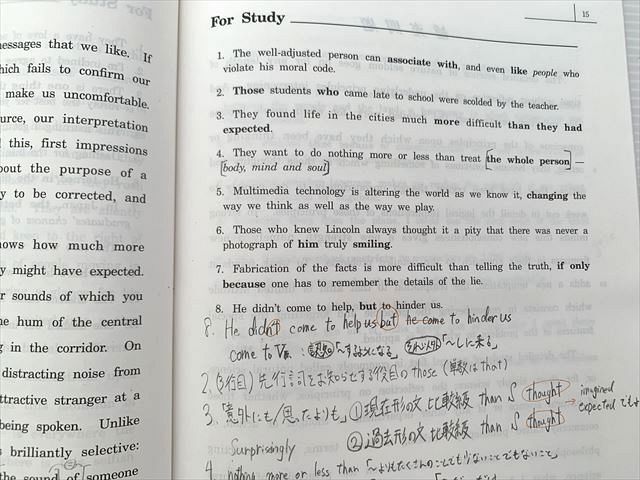 essages that we like. If
hich fails to confirm our
make us uncomfortable.
urce, our interpretation
this, first impressions
bout the purpose of a
y to be corrected, and
ows how much more
y might have expected.
r sounds of which you
he hum of the central
g in the corridor. On
distracting noise from
ttractive stranger at a
being spoken. Unlike
s brilliantly selective:
the sound of someone
For Study
15
1. The well-adjusted person can associate with, and even like people who
violate his moral code.
2. Those students who came late to school were scolded by the teacher.
3. They found life in the cities much more difficult than they had
expected.
4. They want to do nothing more or less than treat [the whole person] —
[body, mind and soul]
5. Multimedia technology is altering the world as we know it, changing the
way we think as well as the way we play.
6. Those who knew Lincoln always thought it a pity that there was never a
photograph of him truly smiling.
7. Fabrication of the facts is more difficult than telling the truth, if only
because one has to remember the details of the lie.
8. He didn't come to help, but to hinder us.
8. He didn't come to help us but he come to hinder us
come to V原 : 認知「〜するようになる」 それ以外「〜しに来る」
2. (3行目) 先行詞をお知らせする役目の those (単数は that)
3. 「意外にも/思ったよりも」 ① 現在形の文 比較級 than S thought
imagined
expected でも
Surprisingly ② 過去形の文 比較級 than S thought
4. nothing more or less than 「〜よりもたくさんのことでも少ないことでもないこと」